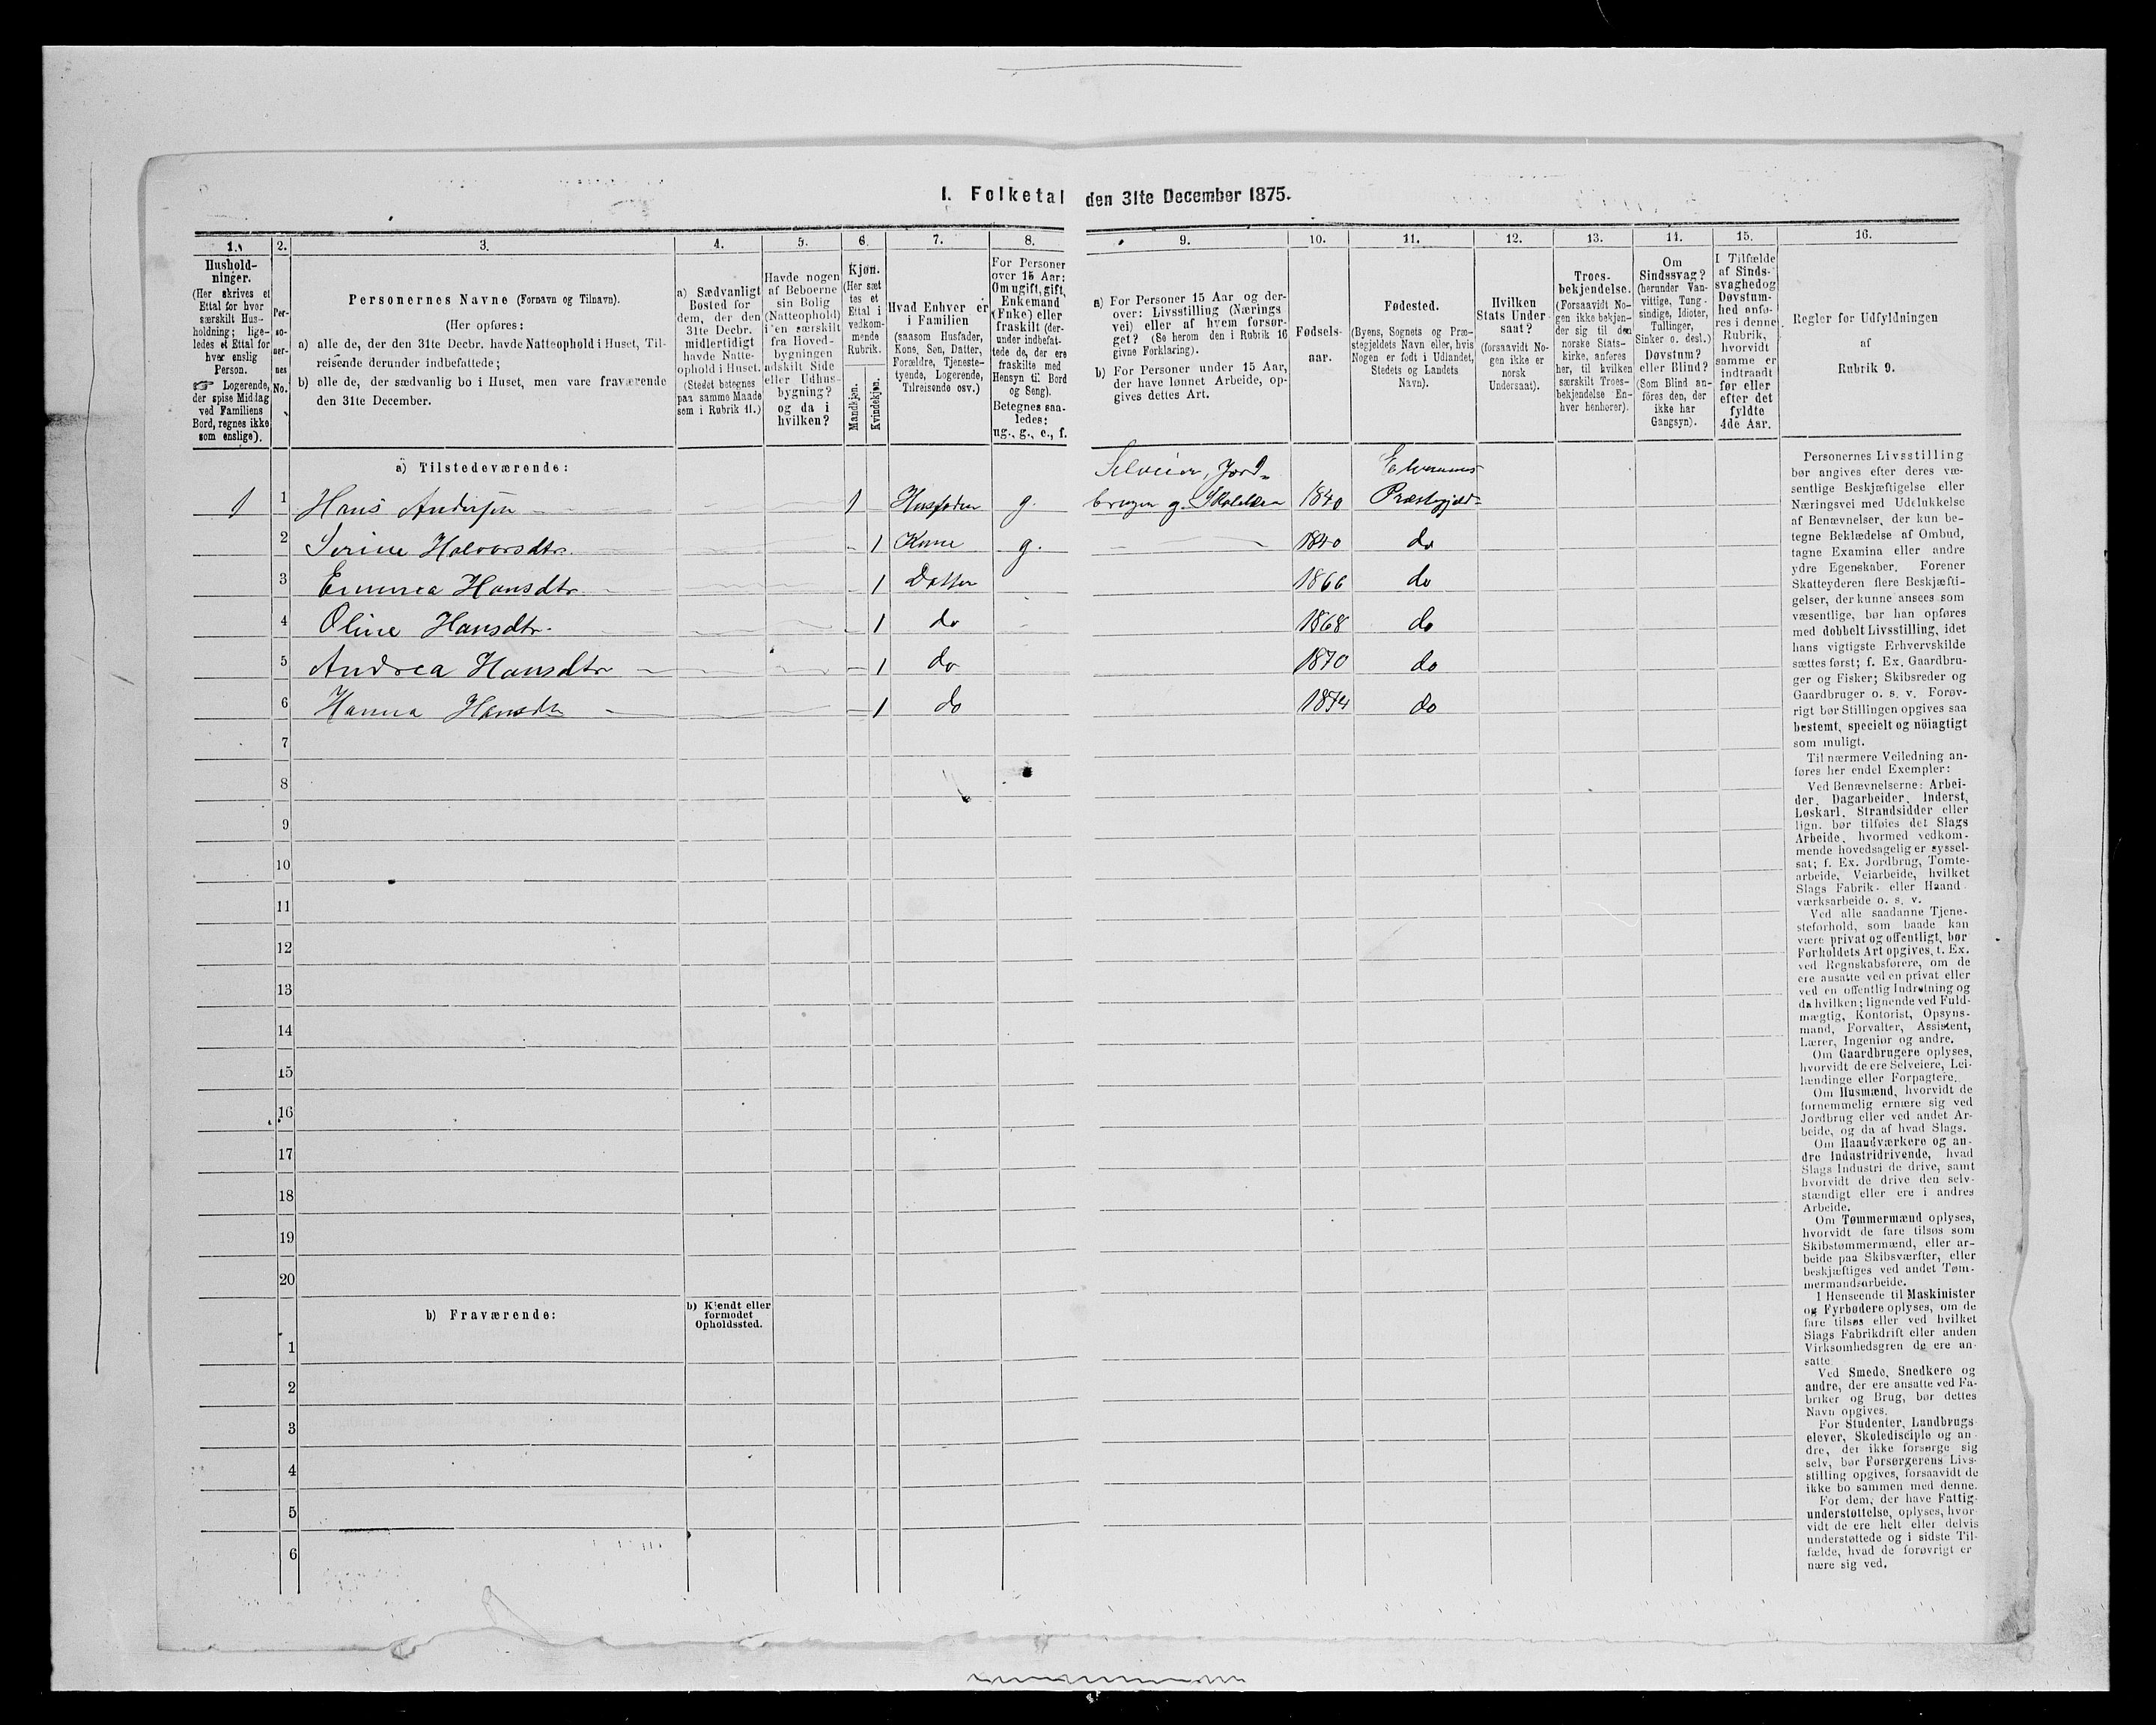 I. Folketal den 31te December 1875.
1. 2. 3. 4. 5. 6. 7. 8. 9. 10. 11. 12. 13. 14. 15. 16.
Hushold-
ninger.
(Her skrives et
Ettal for hver
særskilt Hus-
holdning; lige-
ledes et Ettal for
hver enslig
Person.
☞ Logerende,
der spise Middag
ved Familiens
Bord, regnes ikke
som enslige).
Per-
so-
ner-
nes
No.
Personernes Navne (Fornavn og Tilnavn).
(Her opføres:
a) alle de, der den 31te Decbr. havde Natteophold i Huset, Til-
reisende derunder indbefattede;
b) alle de, der sædvanlig bo i Huset, men vare fraværende
den 31te December.
a) Sædvanligt
Bosted for
dem, der den
31te Decbr.
midlertidigt
havde Natte-
ophold i Huset.
(Stedet betegnes
paa samme Maade
som i Rubrik 11.)
Havde nogen
af Beboerne
sin Bolig
(Natteophold)
i en særskilt
fra Hoved-
bygningen
adskilt Side
eller Udhus-
bygning?
og da i
hvilken?
Kjøn.
(Her sæt
tes et
Ettal i
vedkom-
mende
Rubrik.
Mandkjøn.
Kvindekjøn.
Hvad Enhver er
i Familien
(saasom Husfader,
Kone, Søn, Datter,
Forældre, Tjeneste-
tyende, Logerende,
Tilreisende osv.)
For Personer
over 15 Aar:
Om ugift, gift,
Enkemand
(Enke) eller
fraskilt (der-
under indbefat-
tede de, der ere
fraskilte med
Hensyn til Bord
og Seng).
Betegnes saa-
ledes:
ug., g., e., f.
a) For Personer 15 Aar og der-
over: Livsstilling (Nærings
vei) eller af hvem forsør-
get? (Se herom den i Rubrik 16
givne Forklaring).
b) For Personer under 15 Aar,
der have lønnet Arbeide, op-
gives dettes Art.
Fødsels-
aar.
Fødested.
(Byens, Sognets og Præ-
stegjeldets Navn eller, hvis
Nogen er født i Udlandet,
Stedets og Landets
Navn).
Hvilken
Stats Under
saat?
(forsaavidt No-
gen ikke er
norsk
Undersaat).
Troes-
bekjendelse.
(Forsaavidt No-
gen ikke bekjen-
der sig til den
norske Stats-
kirke, anføres
her, til hvilken
særskilt Troes-
bekjendelse En-
hver henhører).
Om
Sindssvag?
(herunder Van-
vittige, Tung-
sindige, Idioter,
Tullinger,
Sinker o. desl.)
Døvstum?
eller Blind?
(Som Blind an-
føres den, der
ikke har
Gangsyn).
I Tilfælde
af Sinds-
svaghed og
Døvstum-
hed anfø-
res i denne
Rubrik,
hvorvidt
samme er
indtraadt
før eller
efter det
fyldte
4de Aar.
Regler for Udfyldningen
af
Rubrik 9.
a) Tilstedeværende:
Selveier, Jord- Elverums
1 1 Hans Andersen 1 Husfader g. bruger g. 1840 Præstegjeld
2 Serine Halvorsdtr. 1 Kone g. 1840 do
3 Emmea Hansdtr. 1 Datter 1866 do
4 Oline Hansdtr. 1 do 1868 do
5 Andrea Hansdtr 1 do 1870 do
6 Hanna Hansdtr 1 do 1874 do
7
8
9
10
11
12
13
14
15
16
17
18
19
20
b) Fraværende:
b) Kjendt eller
formodet
Opholdssted.
1
2
3
4
5
6
Personernes Livsstilling
bør angives efter deres væ-
sentlige Beskjæftigelse eller
Næringsvei med Udelukkelse
af Benævnelser, der kun be-
tegne Beklædelse af Ombud,
tagne Examina eller andre
ydre Egenskaber. Forener
Skatteyderen flere Beskjæfti-
gelser, der kunne ansees som
væsentlige, bør han opføres
med dobbelt Livsstilling, idet
hans vigtigste Erhvervskilde
sættes først; f. Ex. Gaardbru-
ger og Fisker; Skibsreder og
Gaardbruger o. s. v. Forøv-
rigt bør Stillingen opgives saa
bestemt, specielt og nöiagtigt
som muligt.
Til nærmere Veiledning an-
føres her endel Exempler:
Ved Benævnelserne: Arbei-
der, Dagarbeider, Inderst,
Løskarl, Strandsidder eller
lign. bør tilføies det Slags
Arbeide, hvormed vedkom-
mende hovedsagelig er syssel-
sat; f. Ex. Jordbrug, Tomte-
arbeide, Veiarbeide, hvilket
Slags Fabrik- eller Haand-
værksarbeide o. s. v.
Ved alle saadanne Tjene-
steforhold, som baade kan
være privat og offentligt, bør
Forholdets Art opgives, t. Ex.
ved Regnskabsførere, om de
ere ansatte ved en privat eller
ved en offentlig Indretning og
da hvilken; lignende ved Fuld-
mægtig, Kontorist, Opsyns-
mand, Forvalter, Assistent,
Lærer, Ingeniør og andre.
Om Gaardbrugere oplyses,
hvorvidt de ere Selveiere, Lei-
lændinge eller Forpagtere.
Om Husmænd, hvorvidt de
fornemmelig ernære sig ved
Jordbrug eller ved andet Ar-
beide, og da af hvad Slags.
Om Haandværkere og an-
dre Industridrivende, hvad
Slags Industri de drive, samt
hvorvidt de drive den selv-
stændigt eller ere i andres
Arbeide.
Om Tømmermænd oplyses,
hvorvidt de fare tilsøs som
Skibstømmermænd, eller ar-
beide paa Skibsværfter, eller
beskjæftiges ved andet Tøm-
mermandsarbeide.
I Henseende til Maskinister
og Fyrbødere oplyses, om de
fare tilsøs eller ved hvilket
Slags Fabrikdrift eller anden
Virksomhedsgren de ere an-
satte.
Ved Smede, Snedkere og
andre, der ere ansatte ved Fa-
briker og Brug, bør dettes
Navn opgives.
For Studenter, Landbrugs-
elever, Skoledisciple og an-
dre, der ikke forsørge sig
selv, bør Forsørgerens Livs-
stilling opgives, forsaavidt de
ikke bo sammen med denne.
For dem, der have Fattig-
understøttelse, oplyses, hvor-
vidt de ere helt eller delvis
understøttede og i sidste Til-
fælde, hvad de forøvrigt er
nære sig ved.